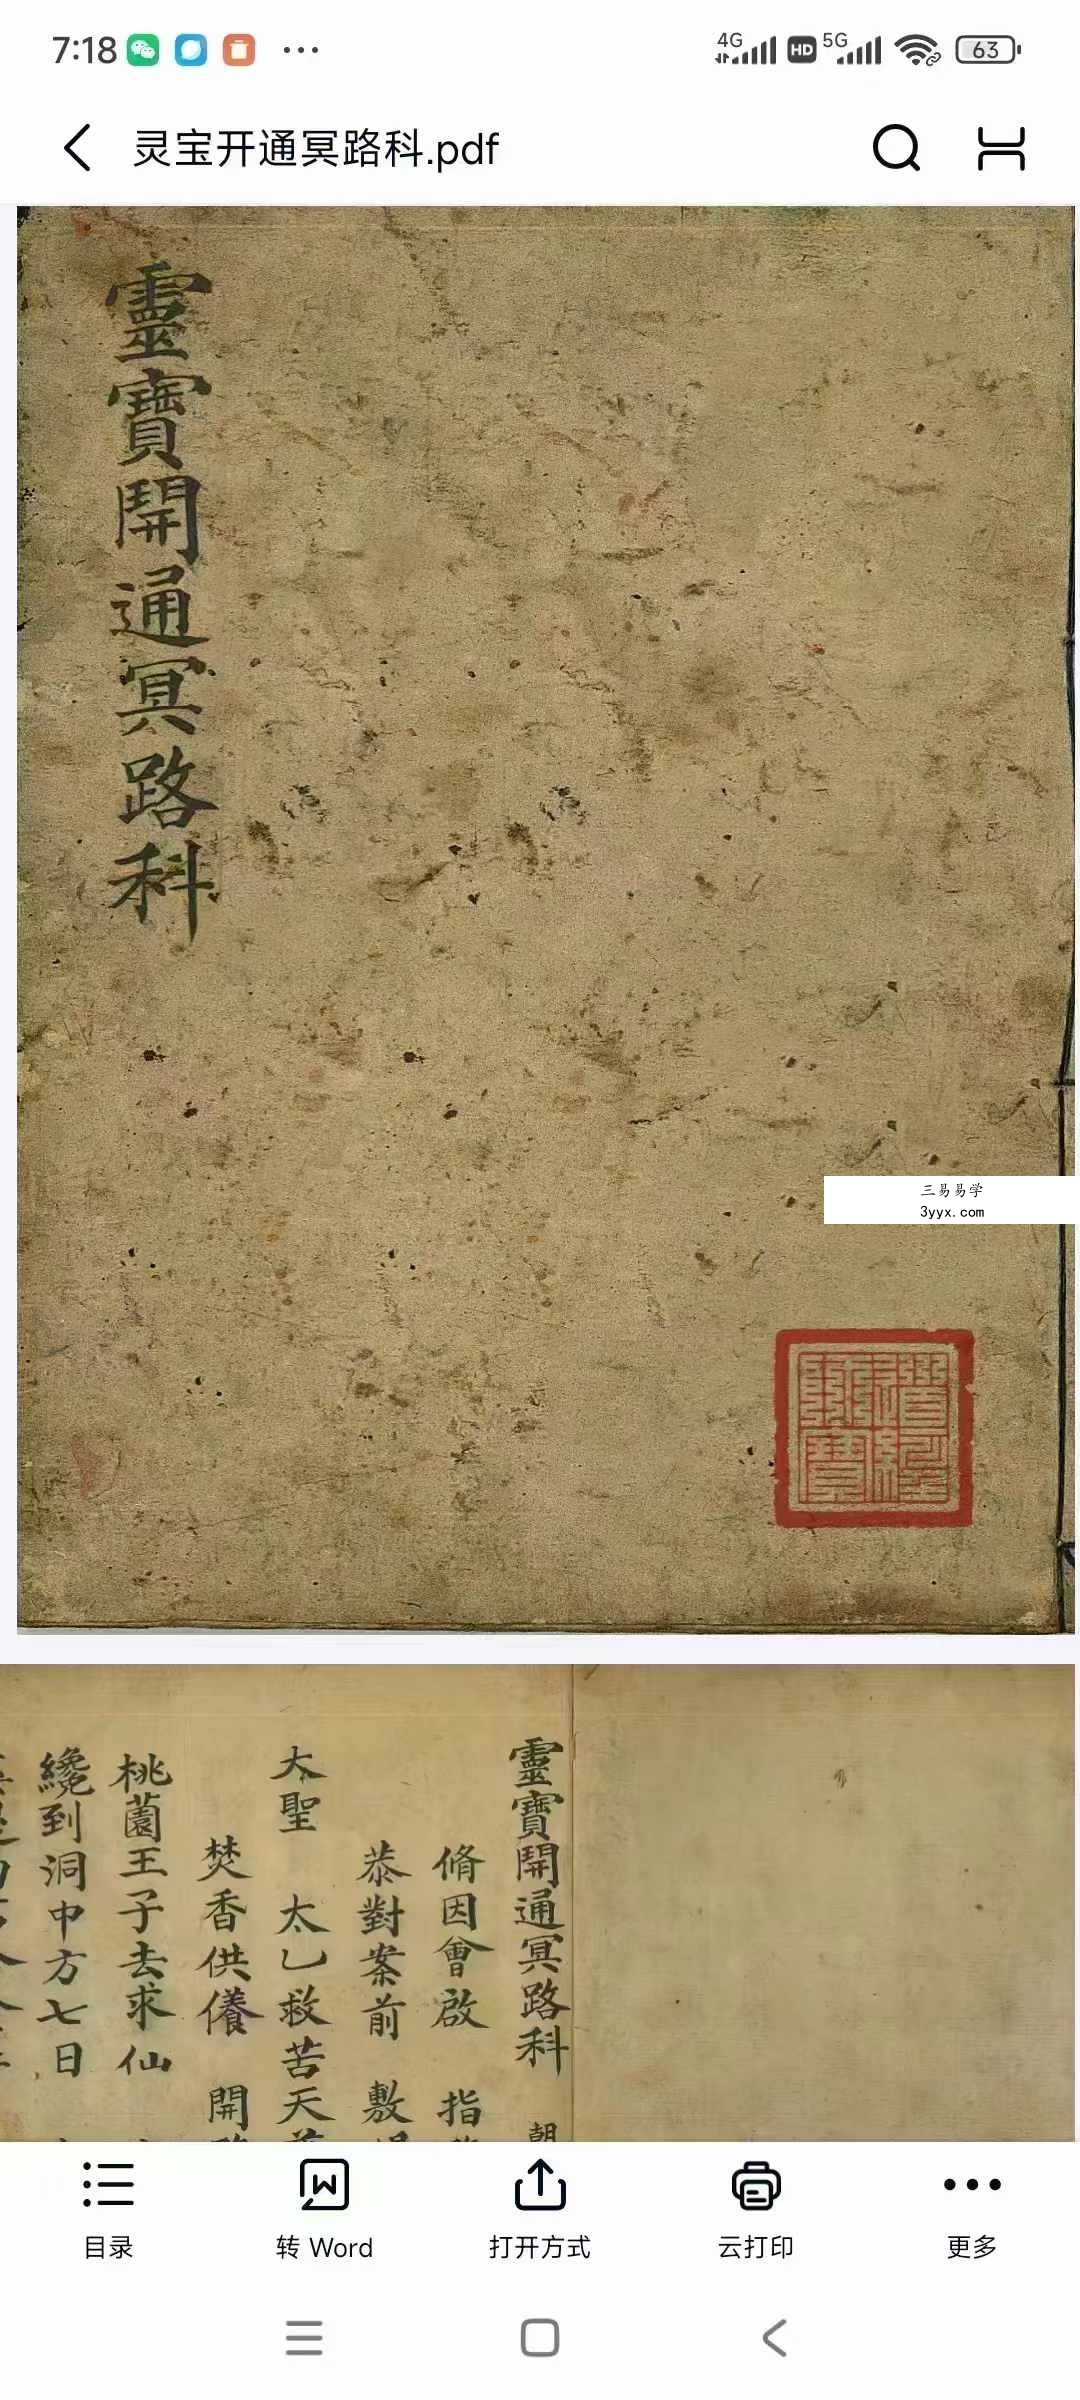 7:18
4G
HD
5G
63
灵宝开通冥路科.pdf
靈寶開通冥路科
三易易学
3yyx.com
靈寶開通冥路科 朝
脩因會啟 指
恭對案前 敷
大聖 太乙救苦天
焚香供養 開
桃園王子去求仙
纔到洞中方七日
目录
转 Word
打开方式
云打印
更多